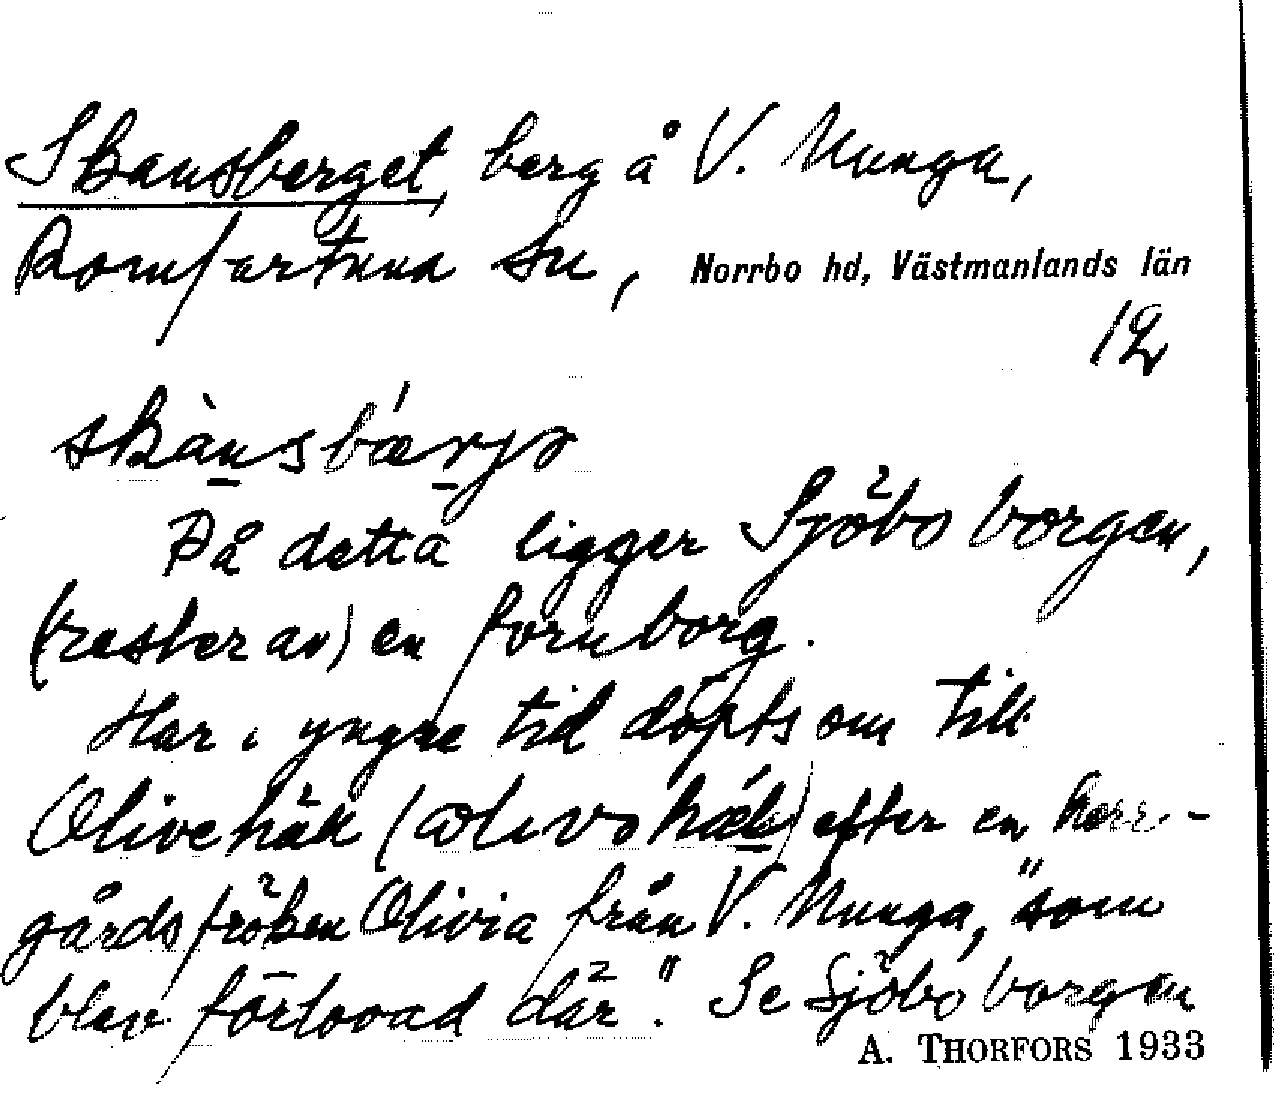 Skansberget, berg å V. Nunga,
Romfartuna sn, Norrbo hd, Västmanlands län
12
skànsbǽrjə
På detta ligger Sjöbo borgen,
(rester av) en fornborg.
Har i yngre tid döpts om till
Olivehäll efter en herr-
gårdsfröken Olivia från V. Nunga, "som
blev förlovad där". Se Sjöbo borgen
A. THORFORS 1933